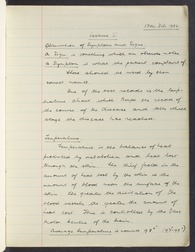 Lecture I.
Observation of Symptoms and Signs.
A Sign is something which an observer notes
A Symptom is what the patient complains of
These should be noted by their
usual names.
One of the best records is the Temp-
erature Chart which keeps the record of
the course of the disease and tells what
stage the disease has reached.
Temperature
Temperature is the balance of heat
produced by metabolism and heat lost
through the skin. The thing fixed in the
amount of heat lost by the skin is the
amount of blood near the surface of the
skin. The greater the dilatation of the
blood vessels the greater the amount of
heat lost. This is controlled by the Vaso
motor centres of the brain.
Average temperature is around 98°